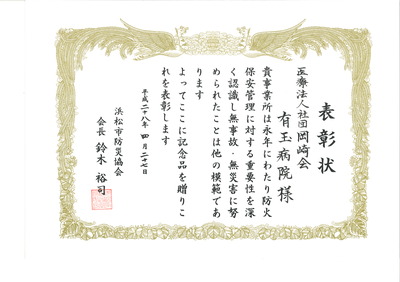 表彰状
医療法人社団岡崎会
有玉病院様
貴事業所は永年にわたり防火
保安管理に対する重要性を深
く認識し無事故・無災害に努
められたことは他の模範であ
ります
よってここに記念品を贈りこ
れを表彰します
平成二十八年 四月二十七日
浜松市防災協会
会長 鈴木裕司